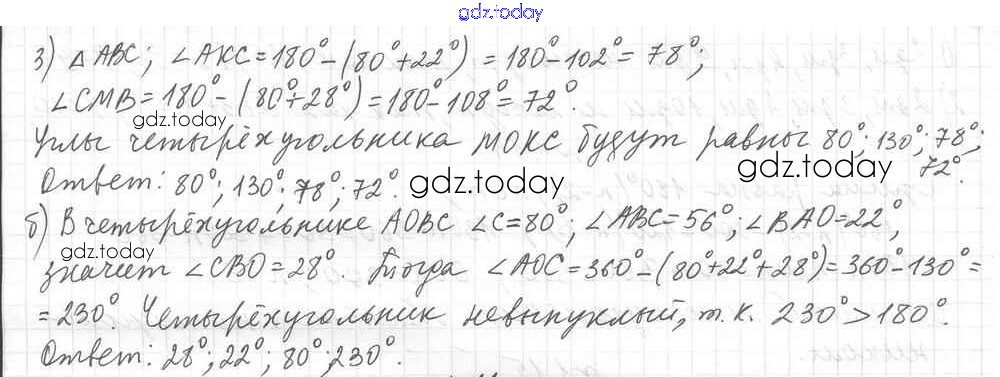 gdz.today
3) △ ABC; ∠AKC = 180° - (80° + 22°) = 180° - 102° = 78°;
∠CMB = 180° - (80° + 28°) = 180° - 108° = 72°.
gdz.today
Углы четырёхугольника МОКС будут равны 80°; 130°; 78°; 72°.
Ответ: 80°; 130°; 78°; 72°.
gdz.today
gdz.today
б) В четырёхугольнике AOBC ∠C = 80°; ∠ABC = 56°; ∠BAO = 22°,
gdz.today
значит ∠CBO = 28°. Тогда ∠AOC = 360° - (80° + 22° + 28°) = 360 - 130° =
= 230°. Четырёхугольник невыпуклый, т. к. 230° > 180°.
Ответ: 28°; 22°; 80°; 230°.